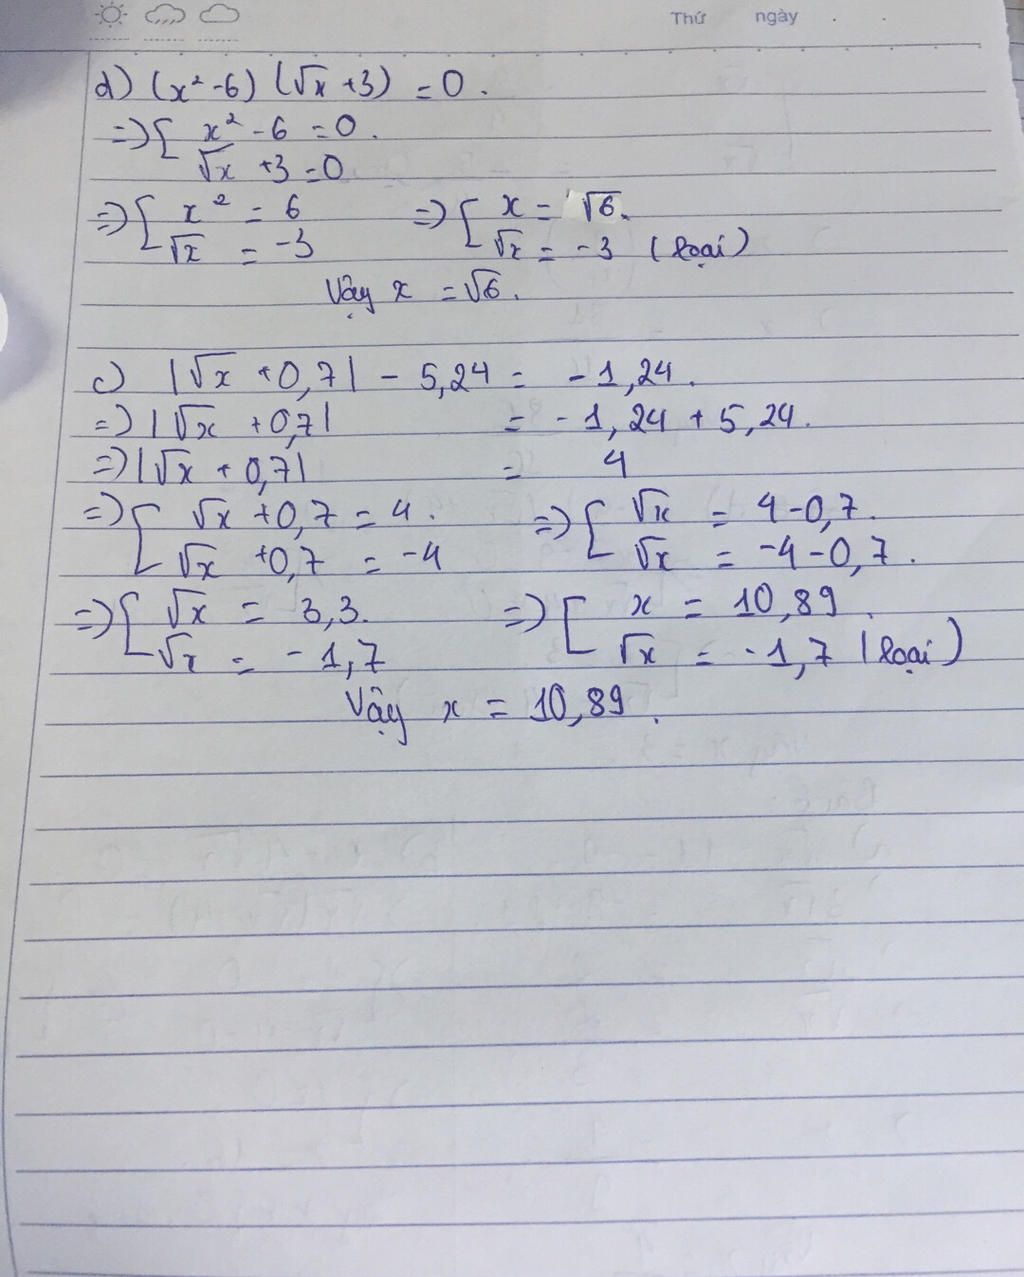 Thứ ngày . .
d) (x² -6) (√x +3) = 0.
=> [ x² - 6 = 0.
√x +3 = 0
=> [ x² = 6 => [ x = √6.
√x = -3 √x = -3 (loại)
Vậy x = √6.
c) |√x + 0,7| - 5,24 = -1,24.
=> |√x + 0,7| = -1,24 + 5,24.
=> |√x + 0,7| = 4
=> [ √x +0,7 = 4. => [ √x = 4-0,7.
√x +0,7 = -4 √x = -4-0,7.
=> [ √x = 3,3. => [ x = 10,89.
√x = -1,7 √x = -1,7 (loại)
Vậy x = 10,89.